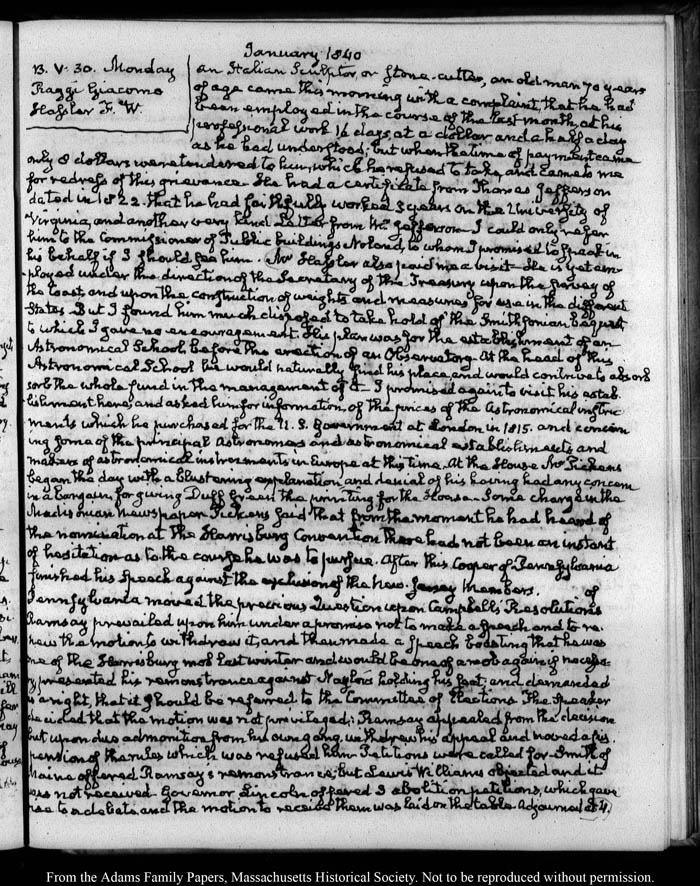 January 1840
13. V. 30. Monday
Raggi Giacomo
Hassler F. W.
an Italian Sculptor, or stone-cutter, an old man 70 years
of age came this morning with a complaint, that he had
been employed in the course of the last month, at his
professional work 16 days, at a dollar and a half a day
as he had understood; but when the time of payment came
only 8 dollars were tendered to him, which he refused to take, and came to me
for redress of this grievance. He had a certificate from Thomas Jefferson
dated in 1822. that he had faithfully worked 3 years on the University of
Virginia, and another very kind Letter from Mr. Jefferson. I could only refer
him to the Commissioner of Public buildings Noland, to whom I promised to speak in
his behalf if I should see him. Mr Hassler also paid me a visit. He is yet em-
ployed under the direction of the Secretary of the Treasury upon the survey of
the Coast, and upon the construction of weights and measures for use in the different
States. But I found him much disposed to take hold of the Smithsonian bequest
to which I gave no encouragement. His plan was for the establishment of an
Astronomical School, before the erection of an Observatory. At the head of this
Astronomical School he would naturally find his place, and would contrive to absorb
sorb the whole fund in the management of it. I promised again to visit his estab-
lishment here, and asked him for information of the prices of the astronomical instru-
ments which he purchased for the U. S. Government at London in 1815. and concern-
ing some of the principal Astronomers and astronomical establishments and
makers of astronomical instruments in Europe at this time. At the House Mr Pickens
began the day with a blustering explanation and denial of his having had any concern
in a bargain for giving Duff Green the printing for the House. Some charge in the
Madisonian newspaper. Pickens said that from the moment he had heard of
the nomination at the Harrisburg Convention there had not been an instant
of hesitation as to the course he was to pursue. After this Cooper of Pennsylvania
finished his speech against the exclusion of the New-Jersey members. of
Pennsylvania moved the previous Question upon Campbell's Resolutions
Ramsay prevailed upon him under a promise not to make a speech and to re-
new the motion to withdraw it, and then made a speech boasting that he was
one of the Harrisburg mob last winter and would be one of a mob again if necessa-
ry, presented his remonstrance against Naylor's holding his seat, and demanded
as a right, that it should be referred to the Committee of Elections. The Speaker
decided that the motion was not privileged; Ramsay appealed from the decision
but upon due admonition from his own gang, withdrew his appeal and moved a sus-
pension of the rules which was refused him. Petitions were called for. Smith of
Maine offered Ramsay's remonstrance; but Lewis Williams objected and it
was not received. Governor Lincoln offered 3 abolition petitions, which gave
rise to a debate, and the motion to receive them was laid on the table. Adjourned at 4.
From the Adams Family Papers, Massachusetts Historical Society. Not to be reproduced without permission.